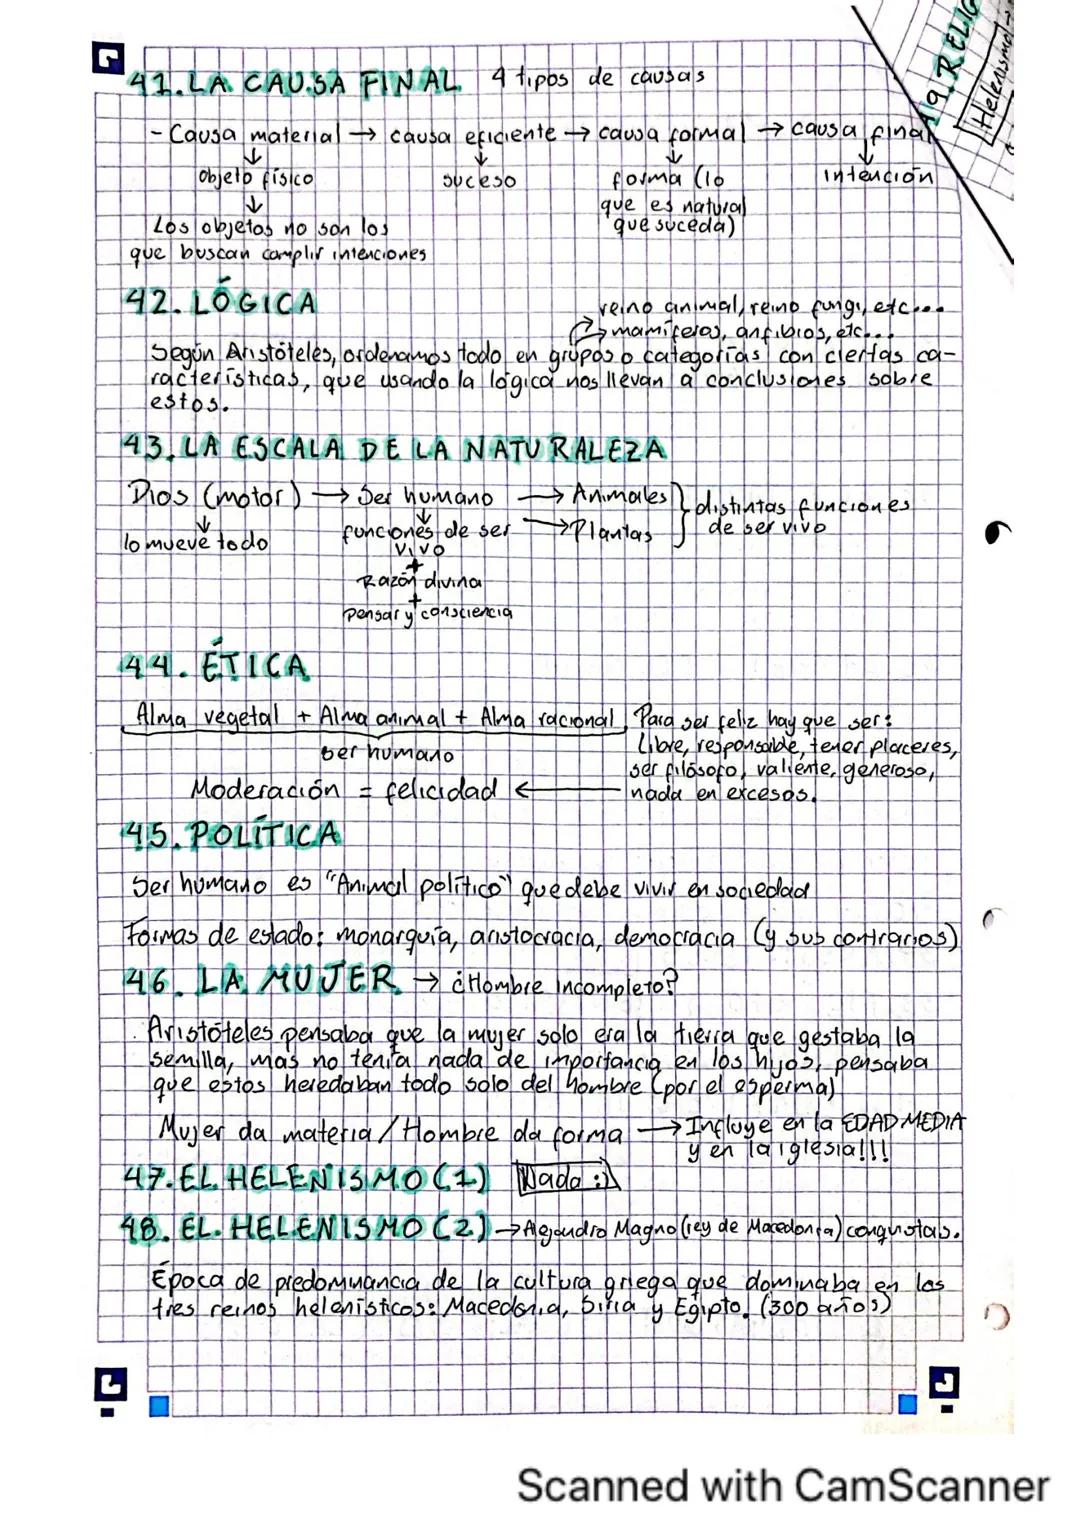 41. LA CAUSA FINAL 4 tipos de causas
- Causa material → causa eficiente → causa formal → causa final
↓ ↓ ↓ ↓
objeto físico suceso forma (lo intención
↓ que es natural
que suceda)
Los objetos no son los
que buscan camplir intenciones
42. LÓGICA
reino animal, reino fungi, etc...
mamíferos, anfibios, etc...
Según Aristóteles, ordenamos todo en grupos o categorías con ciertas ca-
racterísticas, que usando la lógica nos llevan a conclusiones sobre
estos.
43. LA ESCALA DE LA NATURALEZA
Dios (motor) → Ser humano → Animales
→ Plantas
distintas funciones
de ser vivo
↓ ↓
lo mueve todo funciones de ser
vivo
+
Razón divina
+
pensar y consciencia
44. ÉTICA
Alma vegetal + Alma animal + Alma racional
ser humano
Para ser feliz hay que ser:
Libre, responsable, tener placeres,
ser filósofo, valiente, generoso,
nada en excesos.
Moderación = felicidad ←
45. POLÍTICA
Ser humano es "Animal político" que debe vivir en sociedad
Formas de estado: monarquía, aristocracia, democracia (y sus contrarios)
46. LA MUJER → ¿Hombre incompleto?
Aristóteles pensaba que la mujer solo era la tierra que gestaba la
semilla, mas no tenía nada de importancia en los hijos, pensaba
que estos heredaban todo solo del hombre (por el esperma)
Mujer da materia / Hombre da forma → Influye en la EDAD MEDIA
y en la iglesia!!!
47. EL HELENISMO (1) Nada :)
48. EL HELENISMO (2) → Alejandro Magno (rey de Macedonia) conquistas.
Época de predominancia de la cultura griega que dominaba en los
tres reinos helenísticos: Macedonia, Siria y Egipto. (300 años)
Helenismo
Scanned with CamScanner